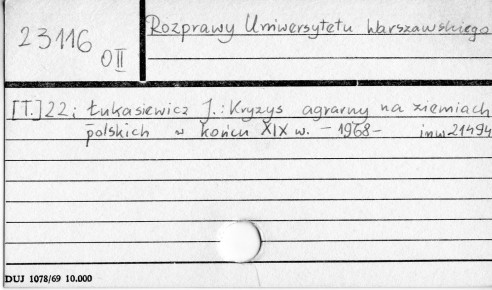 23116
O II
Rozprawy Uniwersytetu Warszawskiego
[T.] 22: Łukasiewicz J.: Kryzys agrarny na ziemiach
polskich w końcu XIX w. – 1968 – inw 21494
DUJ 1078/69 10.000